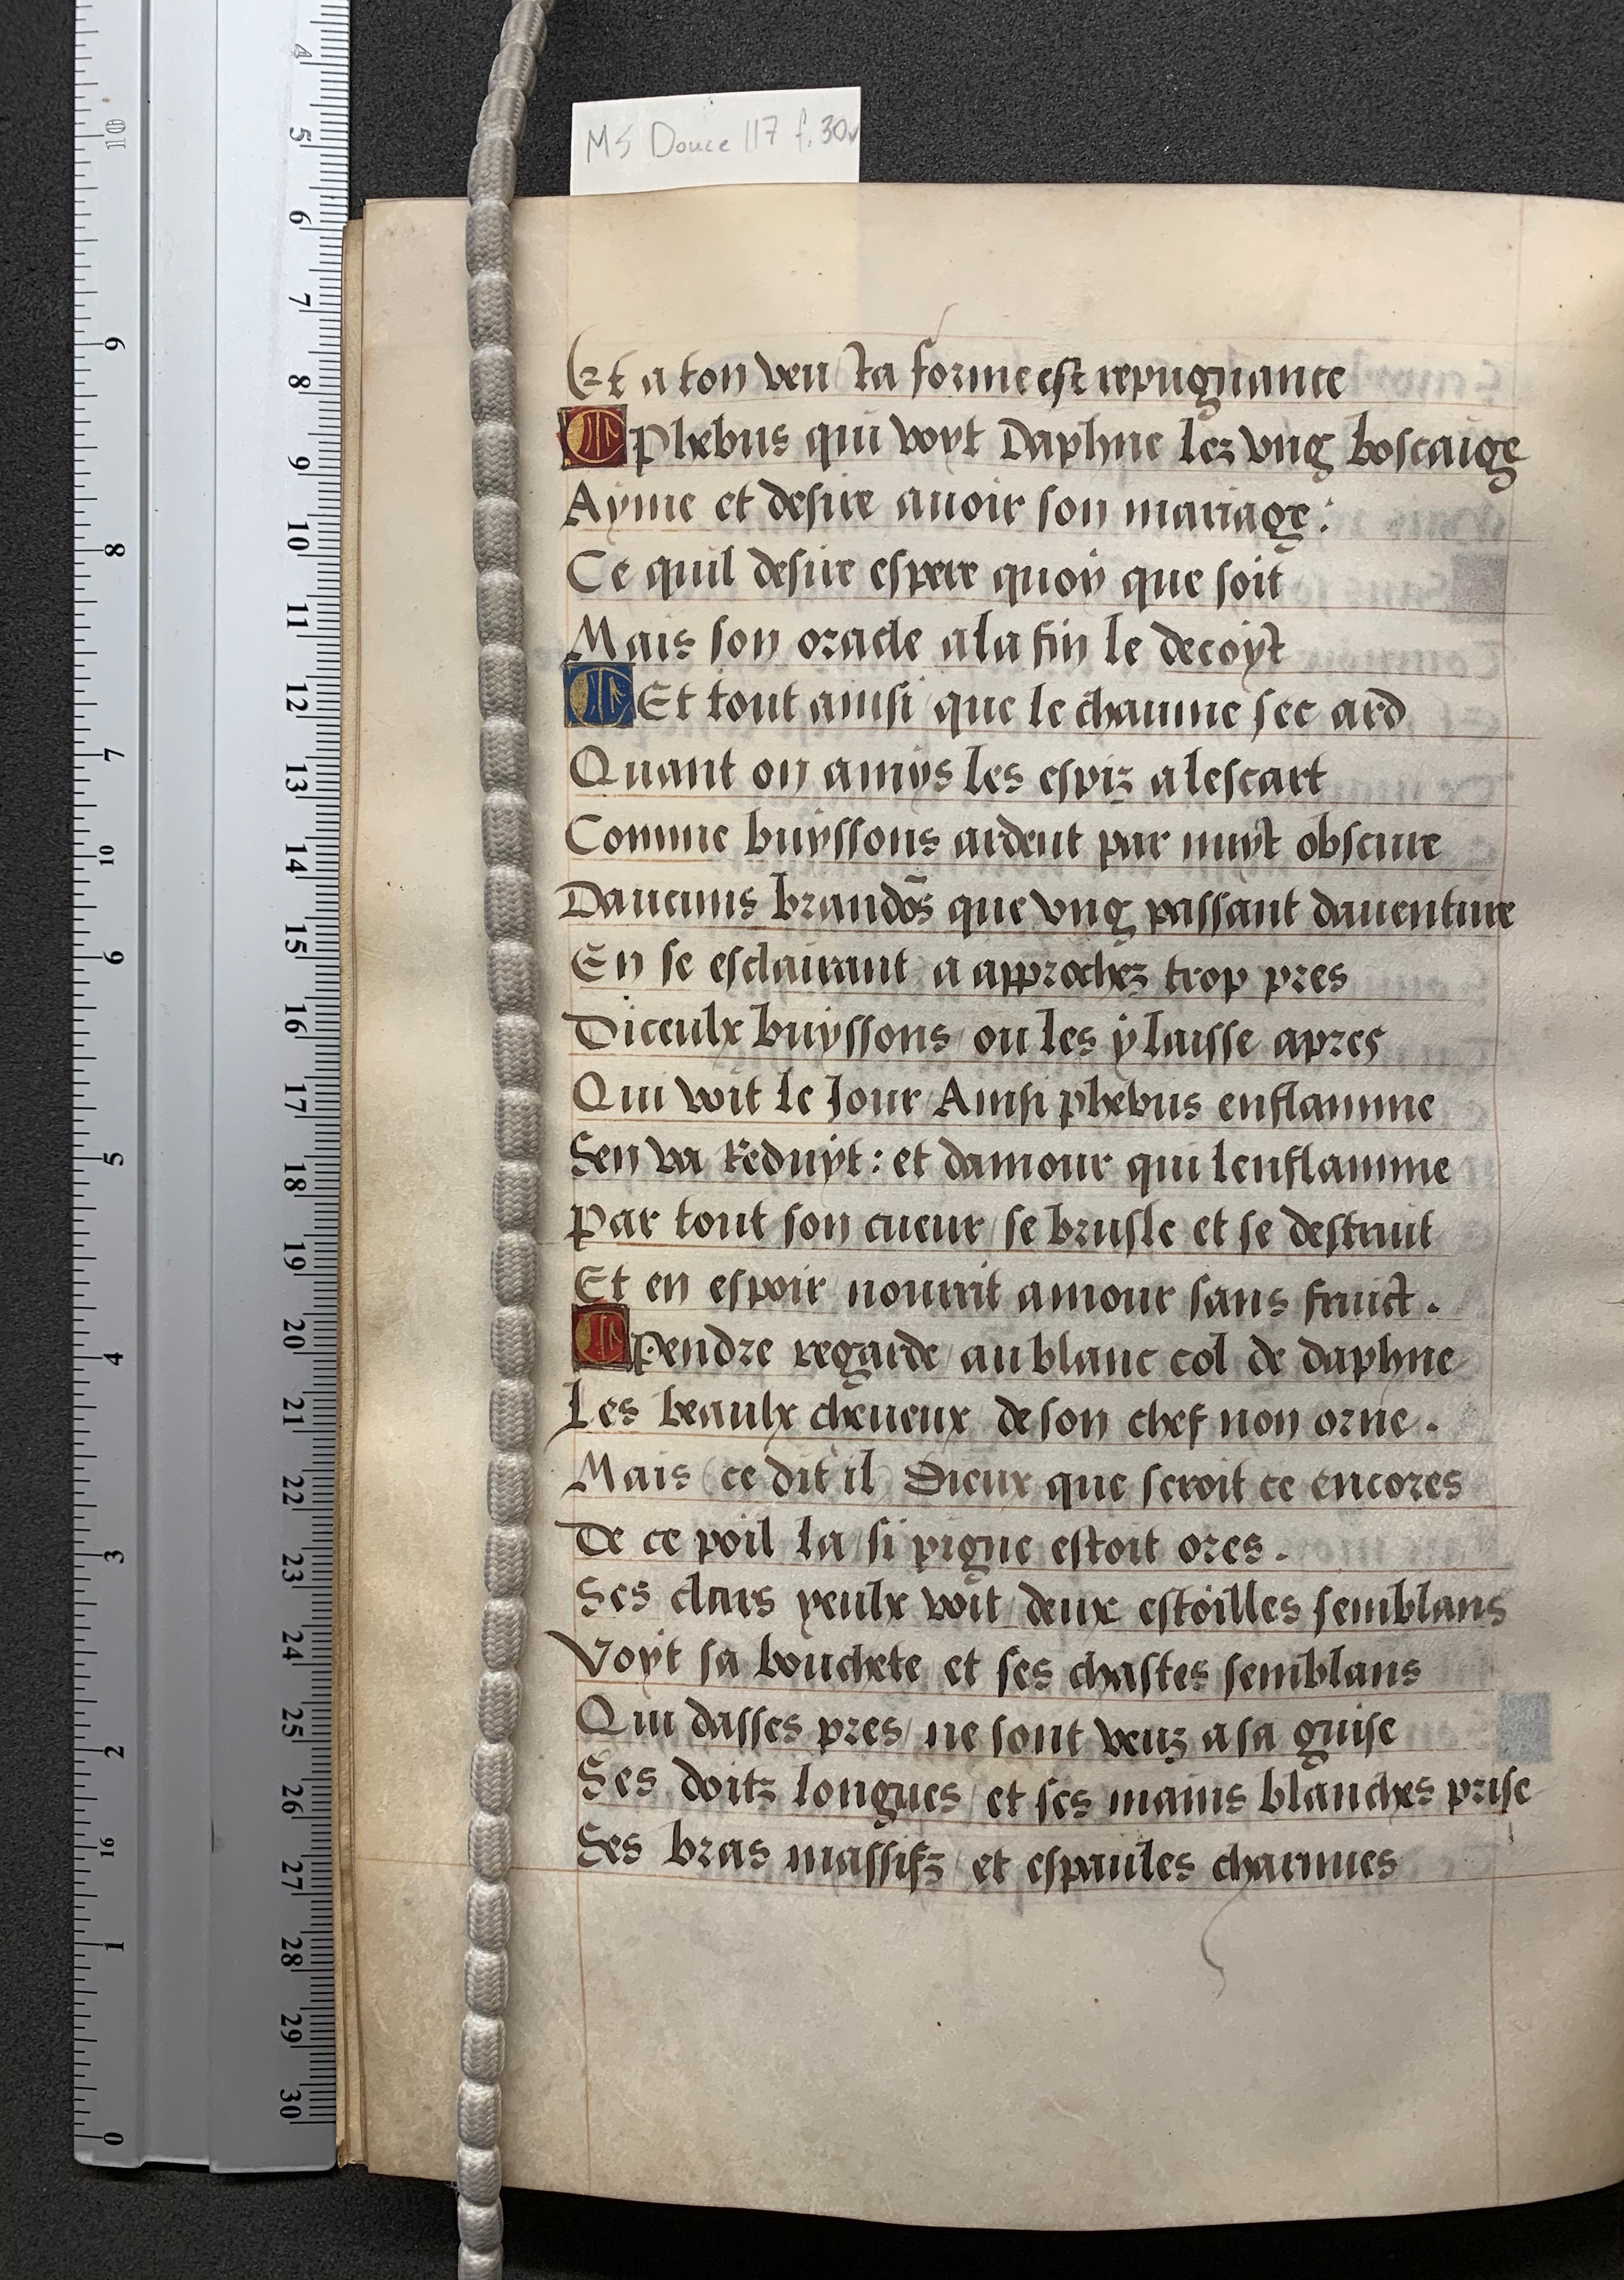 MS Douce 117 f. 30v
Et a ton veu / ta forme est repugnante
¶ Phebus qui voyt Daphne lez vng boscaige
Ayme et desire auoir son mariage :
Ce quil desire espere quoy que soit
Mais son oracle a la fin le decoyt
¶ Et tout ainsi que le chaume sec ard
Quant on a mys les espiz a lescart
Comme buyssons ardent par nuyt obscure
Daucuns brandõs que vng passant dauenture
En se esclairant a approchez trop pres
Diceulx buyssons / ou les y laisse apres
Qui voit le Jour / Ainsi phebus enflamme
Sen va reduyt : et damour qui lenflamme
Par tout son cueur / se brusle et se destruit
Et en espoir nourrit amour sans fruict .
¶ Pendre regarde / au blanc col de daphne
Les beaulx cheueux de son chef non orne .
Mais (ce dit il) Dieux que seroit ce encores
De ce poil la / si pigne estoit ores .
Ses clars yeulx voit / deux estoilles semblans
Voyt sa bouchete et ses chastes semblans
Qui dasses pres / ne sont veuz a sa guise
Ses doitz longues / et ses mains blanches prise
Ses bras massifz / et espaules charnues
4
5
6
7
8
9
10
11
12
13
14
15
16
17
18
19
20
21
22
23
24
25
26
27
28
29
30
10
9
8
7
10
6
5
4
3
2
16
1
0